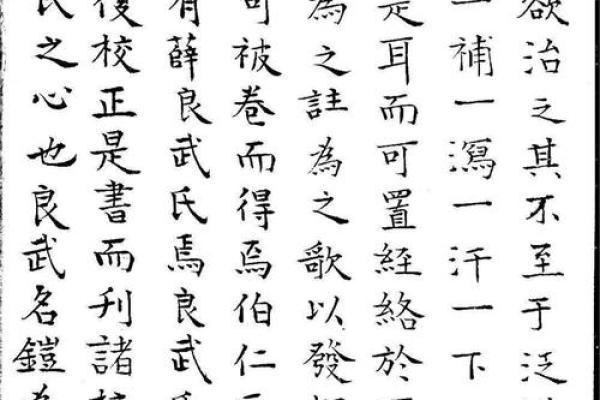 欲治之其不至于泛
一補一瀉一汗一下
是耳而可置経絡於
為之註為之歌以發
可被卷而得焉伯仁
有薛良武氏焉良武氏
後校正是書而刋諸
民之心也良武名鎧